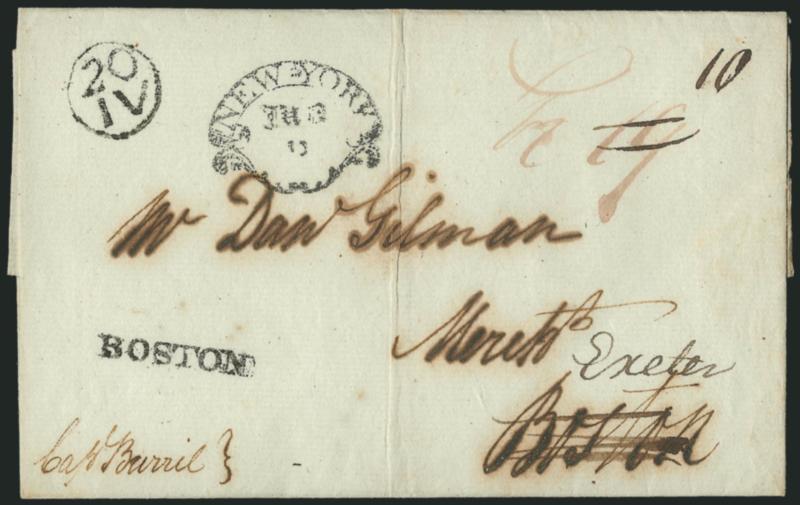 20
IV
NEW-YORK
10
19
Mr Danl Gilman
Mercht
Exeter
BOSTON
Boston
Capt Burril